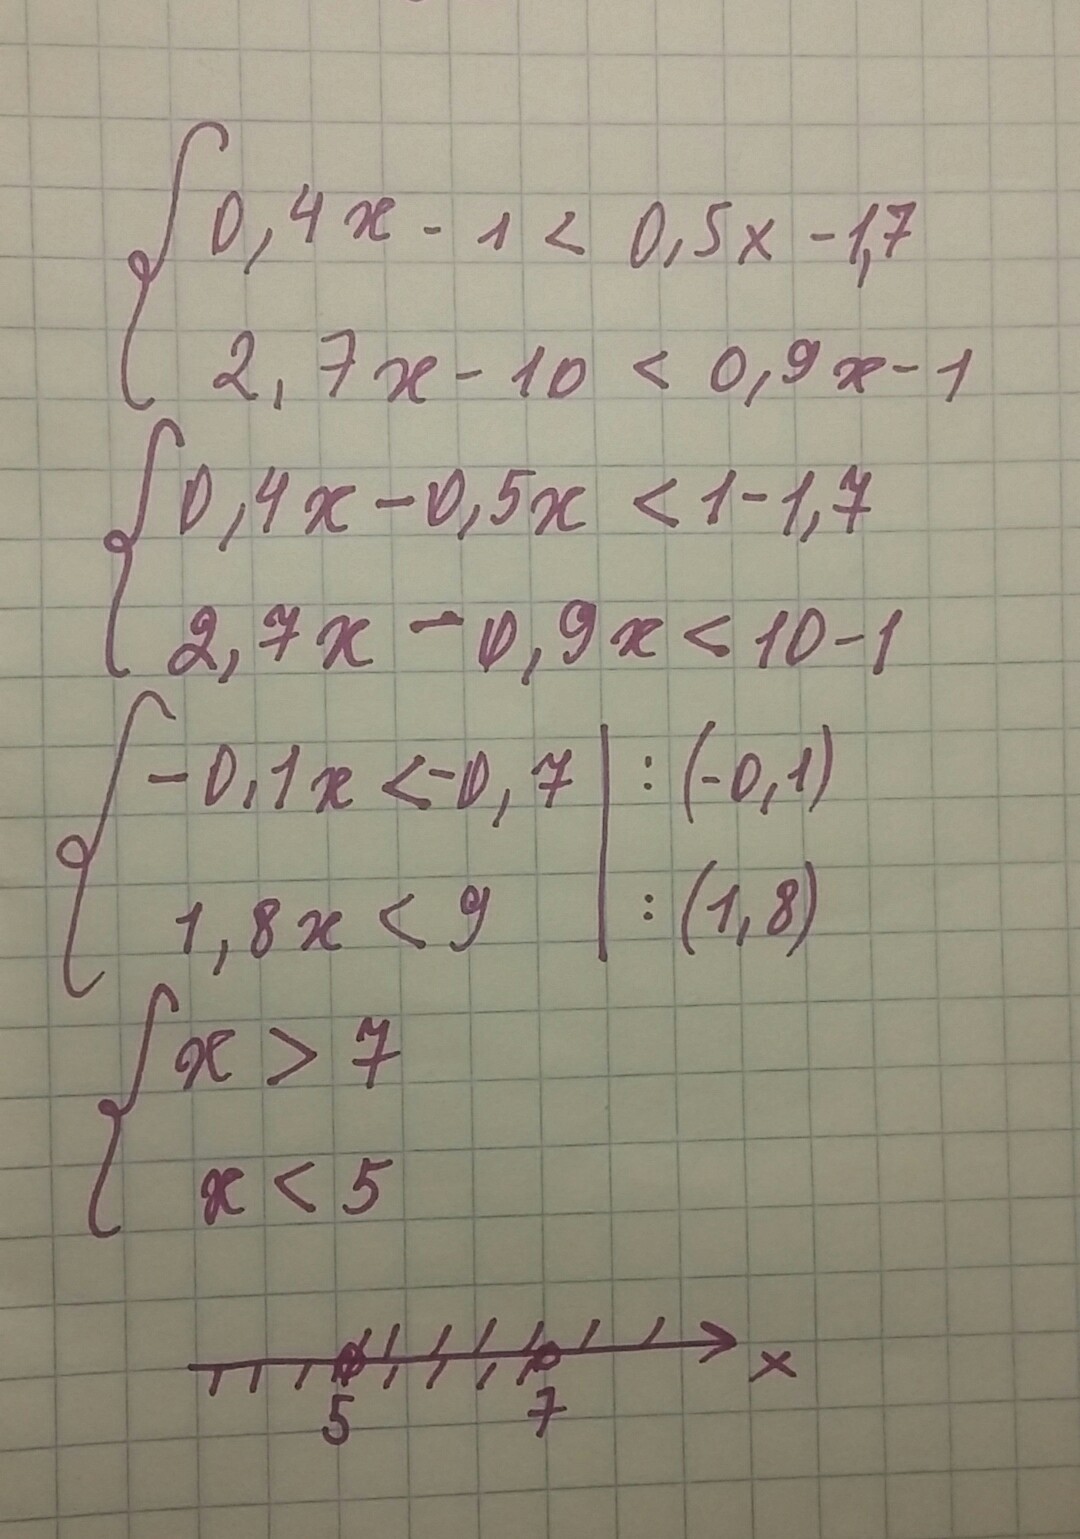 0,4x - 1 < 0,5x - 1,7
2,7x - 10 < 0,9x - 1
0,4x - 0,5x < 1 - 1,7
2,7x - 0,9x < 10 - 1
-0,1x < -0,7 | : (-0,1)
1,8x < 9 | : (1,8)
x > 7
x < 5
x
5 7